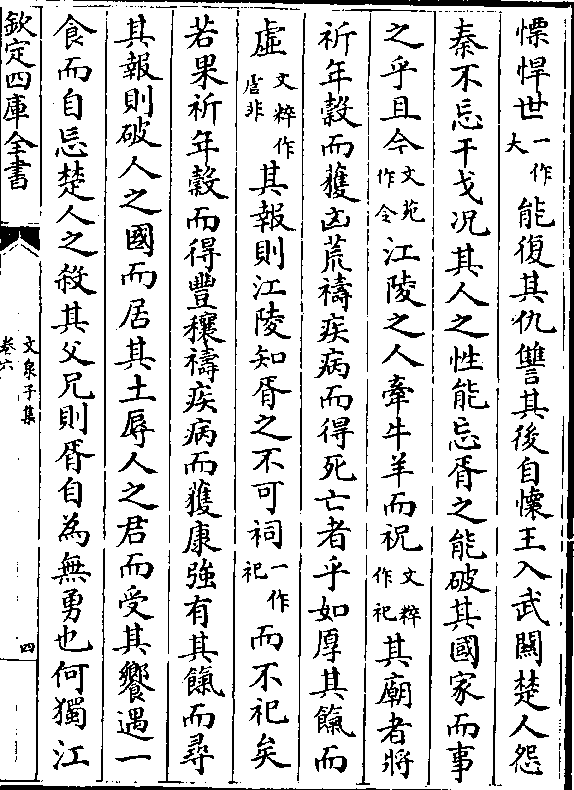 慓悍世一作大能復其仇讐其後自懷王入武關楚人怨
秦不忘干戈况其人之性能忘胥之能破其國家而事
之乎且今文苑作令江陵之人牽牛羊而祝文粹作祀其廟者將
祈年榖而獲凶荒禱疾病而得死亡者乎如厚其餼而
虛文粹作虗非其報則江陵知胥之不可祠一作祀而不祀矣
若果祈年榖而得豐穰禱疾病而獲康強有其餼而尋
其報則破人之國而居其土辱人之君而受其饗遇一
食而自忘楚人之殺其父兄則胥自為無勇也何獨江
欽定四庫全書
文泉子集
卷六
四